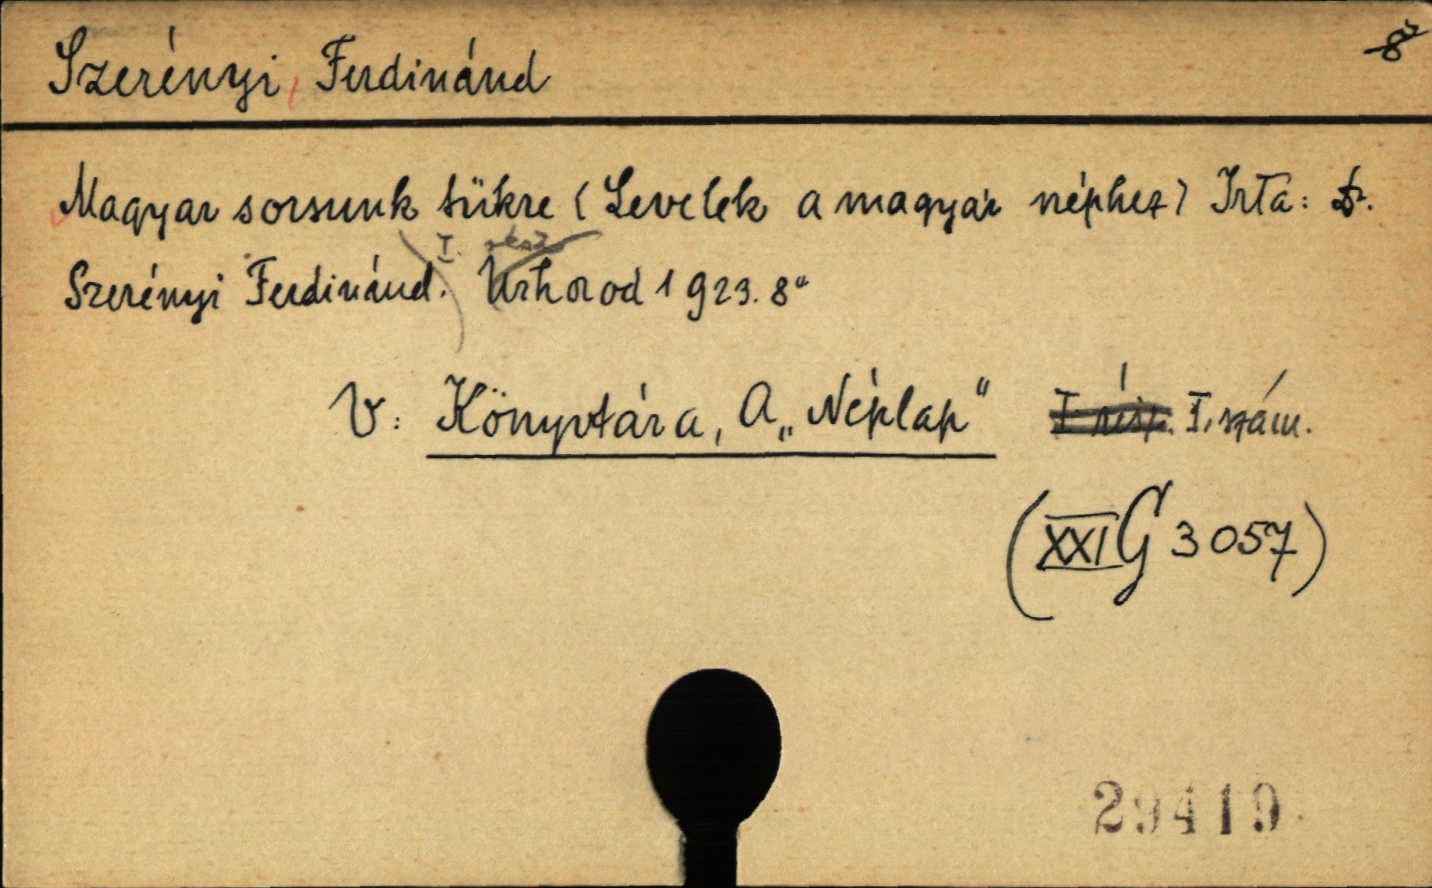 Szerényi, Ferdinánd
Magyar sorsunk tükre (Levelek a magyar néphez) Irta: Dr.
I. rész
Szerényi Ferdinánd. Uzhorod 1923. 8°
V: Könyvtára, A „Néplap" I. rész. I. szám.
(XXI G 3057)
29419